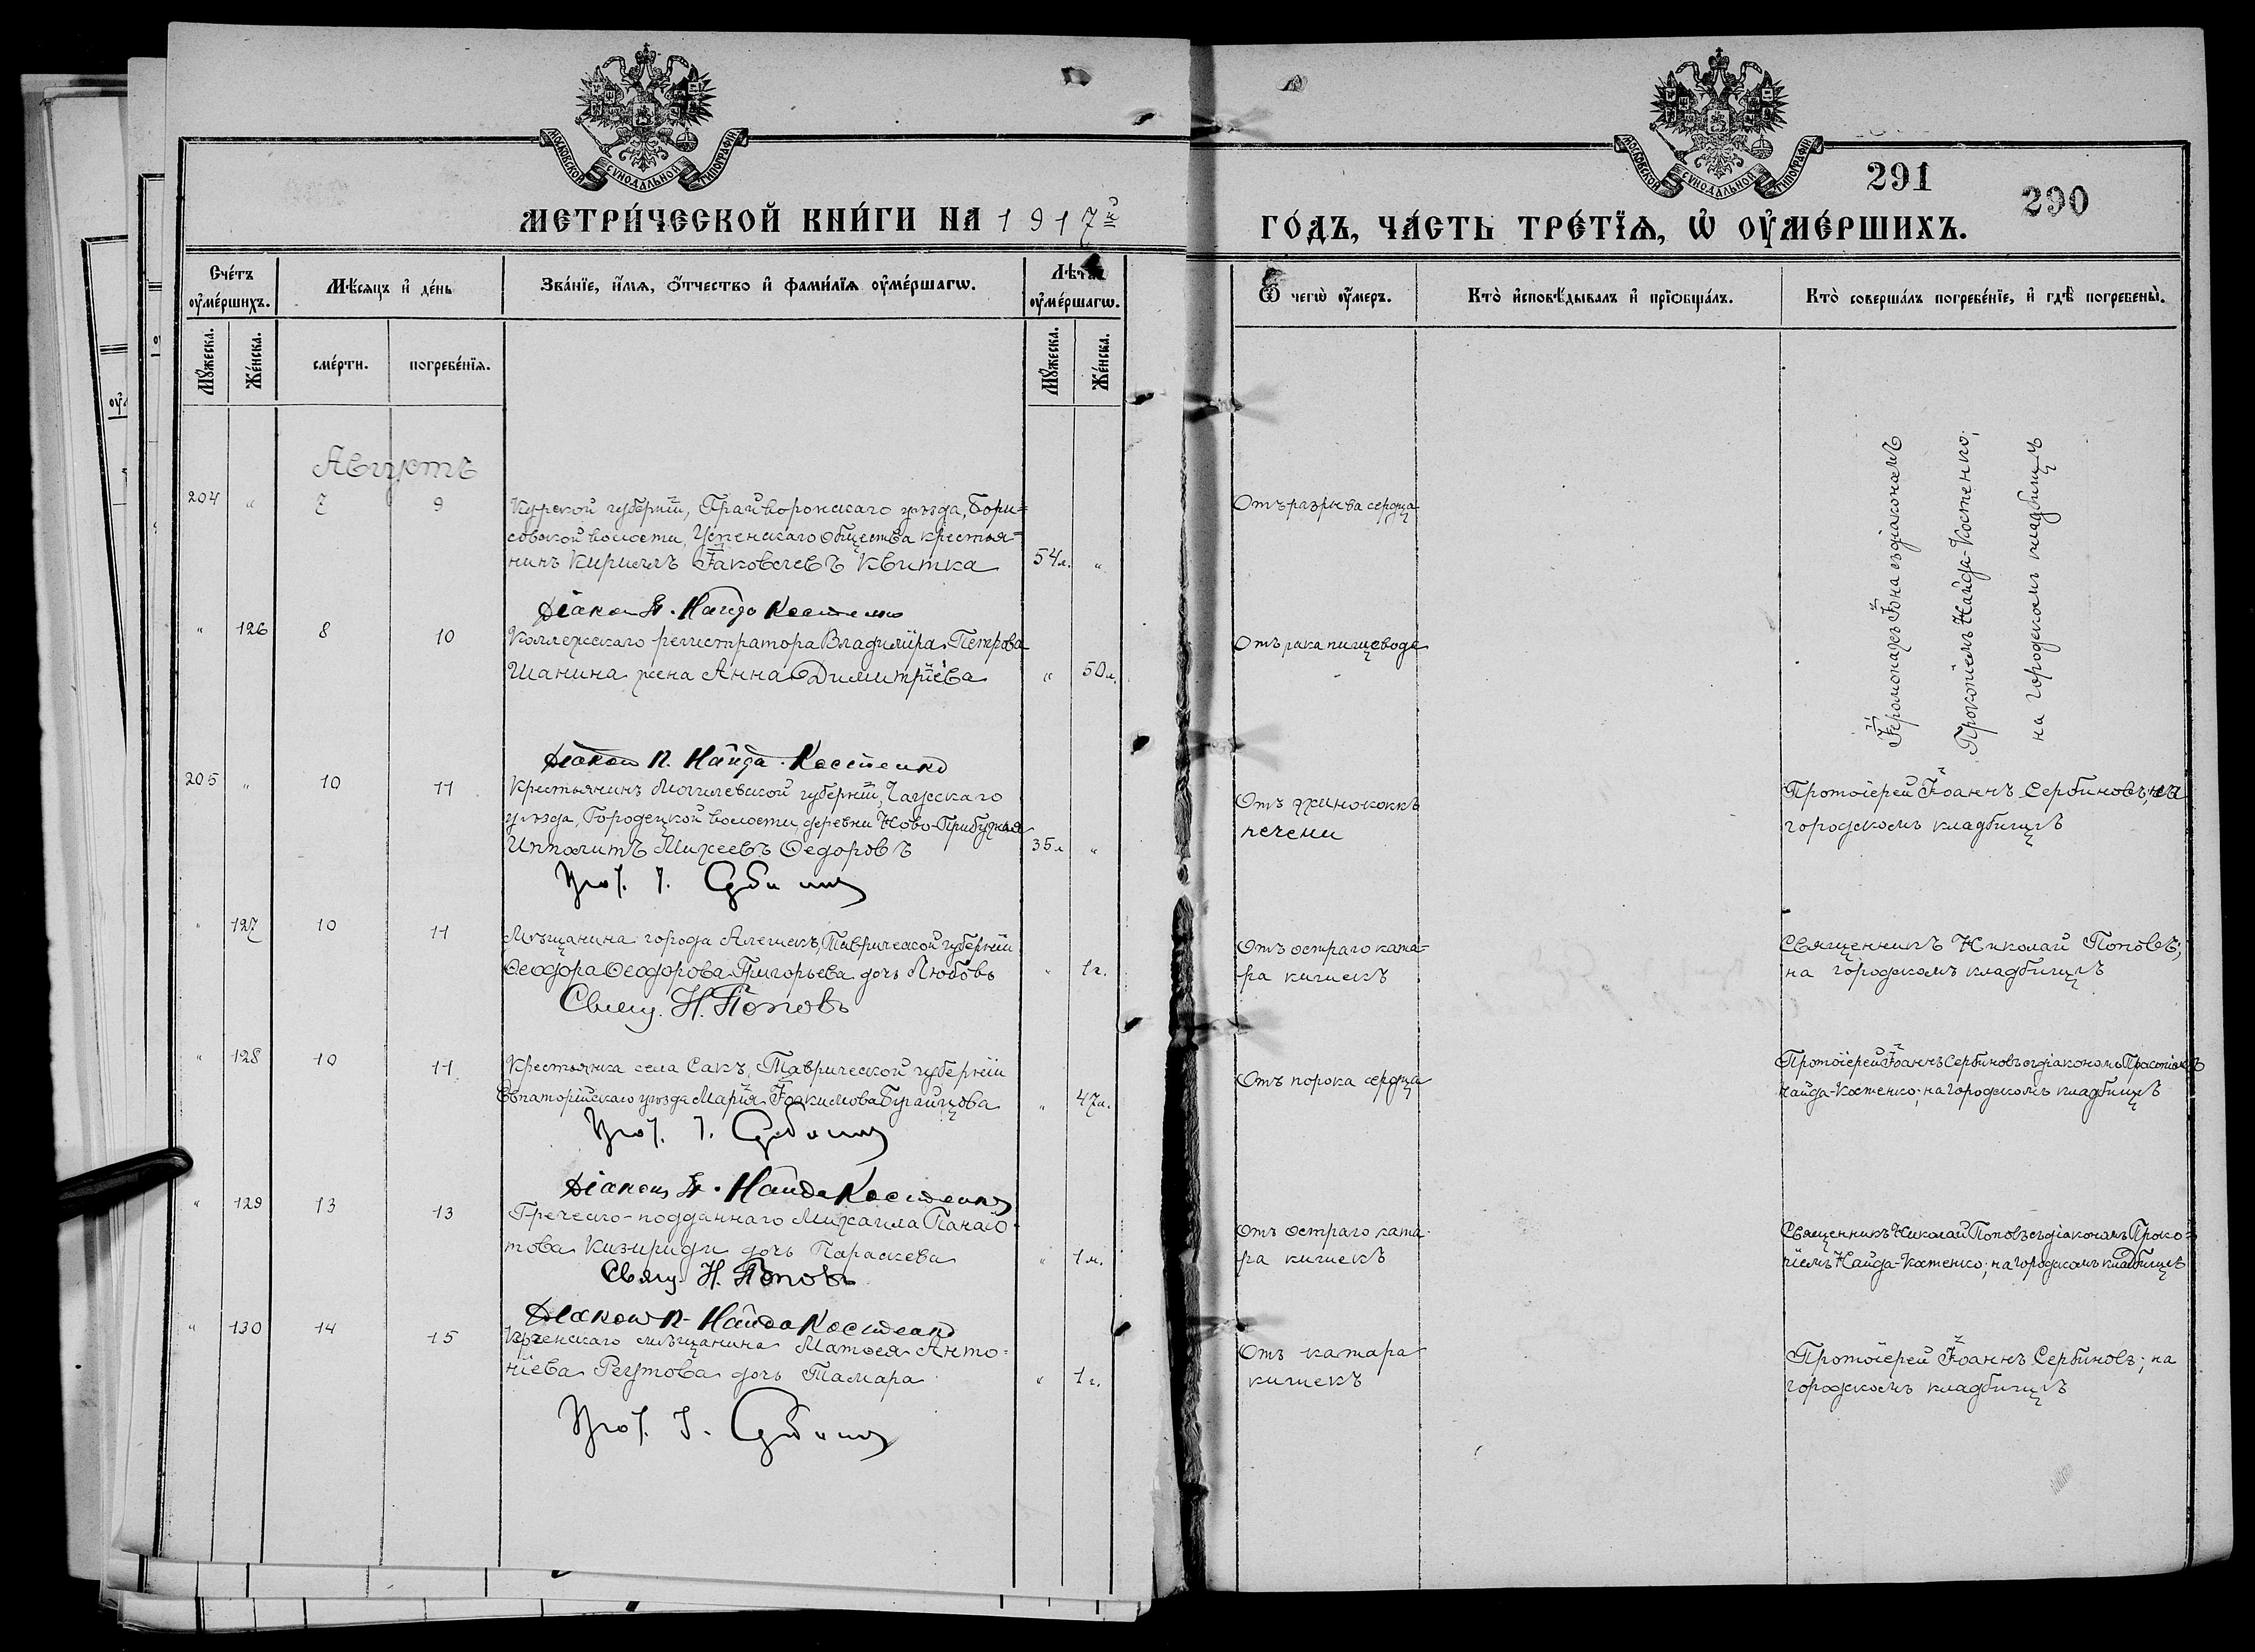 МОСКОВСКОЙ СѴНОДАЛЬНОЙ ТИПОГРАФІИ
МОСКОВСКОЙ СѴНОДАЛЬНОЙ ТИПОГРАФІИ
291
290
МЕТРИ́ЧЕСКОЙ КНИ́ГИ НА 1917й
ГО́ДЪ, ЧА́СТЬ ТРЕ́ТЇѦ, Ѡ҆ ОУ҆МЕ́РШИХЪ.
Сче́тъ оу҆ме́ршихъ.
Мѣ́сяцъ и҆ де́нь
Зва́нїе, и҆́мѧ, ѻ҆́тчество и҆ фами́лїѧ оу҆ме́ршагѡ.
Лѣта̀ оу҆ме́ршагѡ.
Ѿ чегѡ̀ оу҆́меръ.
Кто̀ и҆сповѣ́дывалъ и҆ прїѡбща́лъ.
Кто̀ соверша́лъ погребе́нїе, и҆ гдѣ̀ погребены̀.
Мꙋ́жеска.
Же́нска.
сме́рти.
погребе́нїѧ.
Мꙋ́жеска.
Же́нска.
Августъ
204 " 7 9 Курской губерніи, Грайворонскаго уѣзда, Бори=
совской волости, Успенскаго общества крестья=
нинъ Кириллъ Іаковлевъ Квитка 54 л. "
Отъ разрыва сердца
Іеромонахъ Іона съ діакономъ
Прокопіемъ Найда-Костенко;
на городскомъ кладбищѣ
Діакон П. Найда Костенко
" 126 8 10 Коллежскаго регистратора Владиміра Петрова
Шанина жена Анна Димитріева " 50 л.
Отъ рака пищевода
Діакон П. Найда-Костенко
205 " 10 11 Крестьянинъ Могилевской губерніи, Чаусскаго
уѣзда, Городецкой волости, деревни Ново-Прибужья
Ипполитъ Михеевъ Федоровъ 35 л "
Отъ эхинококкъ
печени
Протоіерей Іоаннъ Сербиновъ; на
городскомъ кладбищѣ
Прот. І. Сербинов
" 127 10 11 Мѣщанина города Алешекъ, Таврической губерніи
Ѳеодора Ѳеодорова Григорьева дочь Любовь " 1 г.
Отъ остраго ката=
ра кишекъ
Священникъ Николай Поповъ;
на городскомъ кладбищѣ
Свящ. Н. Поповъ
" 128 10 11 Крестьянка села Сакъ, Таврической губерніи
Евпаторійскаго уѣзда Марія Іоакимова " 47 л.
Отъ порока сердца
Протоіерей Іоаннъ Сербиновъ съ діакономъ Прокопіемъ
Найда-Костенко; на городскомъ кладбищѣ
Прот. І. Сербинов
Діаконъ П. Найда Костенко
" 129 13 13 Греческо-подданнаго Михаила Панаіо=
това Кизириди дочь Параскева " 1 м.
Отъ остраго ката=
ра кишекъ
Священникъ Николай Поповъ съ діакономъ Проко=
піемъ Найда-Костенко; на городскомъ кладбищѣ
Свящ. Н. Поповъ
Діакон П. Найда Костенко
" 130 14 15 Керченскаго мѣщанина Матѳея Анто=
ніева Реутова дочь Тамара " 1 г.
Отъ катара
кишекъ
Протоіерей Іоаннъ Сербиновъ; на
городскомъ кладбищѣ
Прот. І. Сербинов